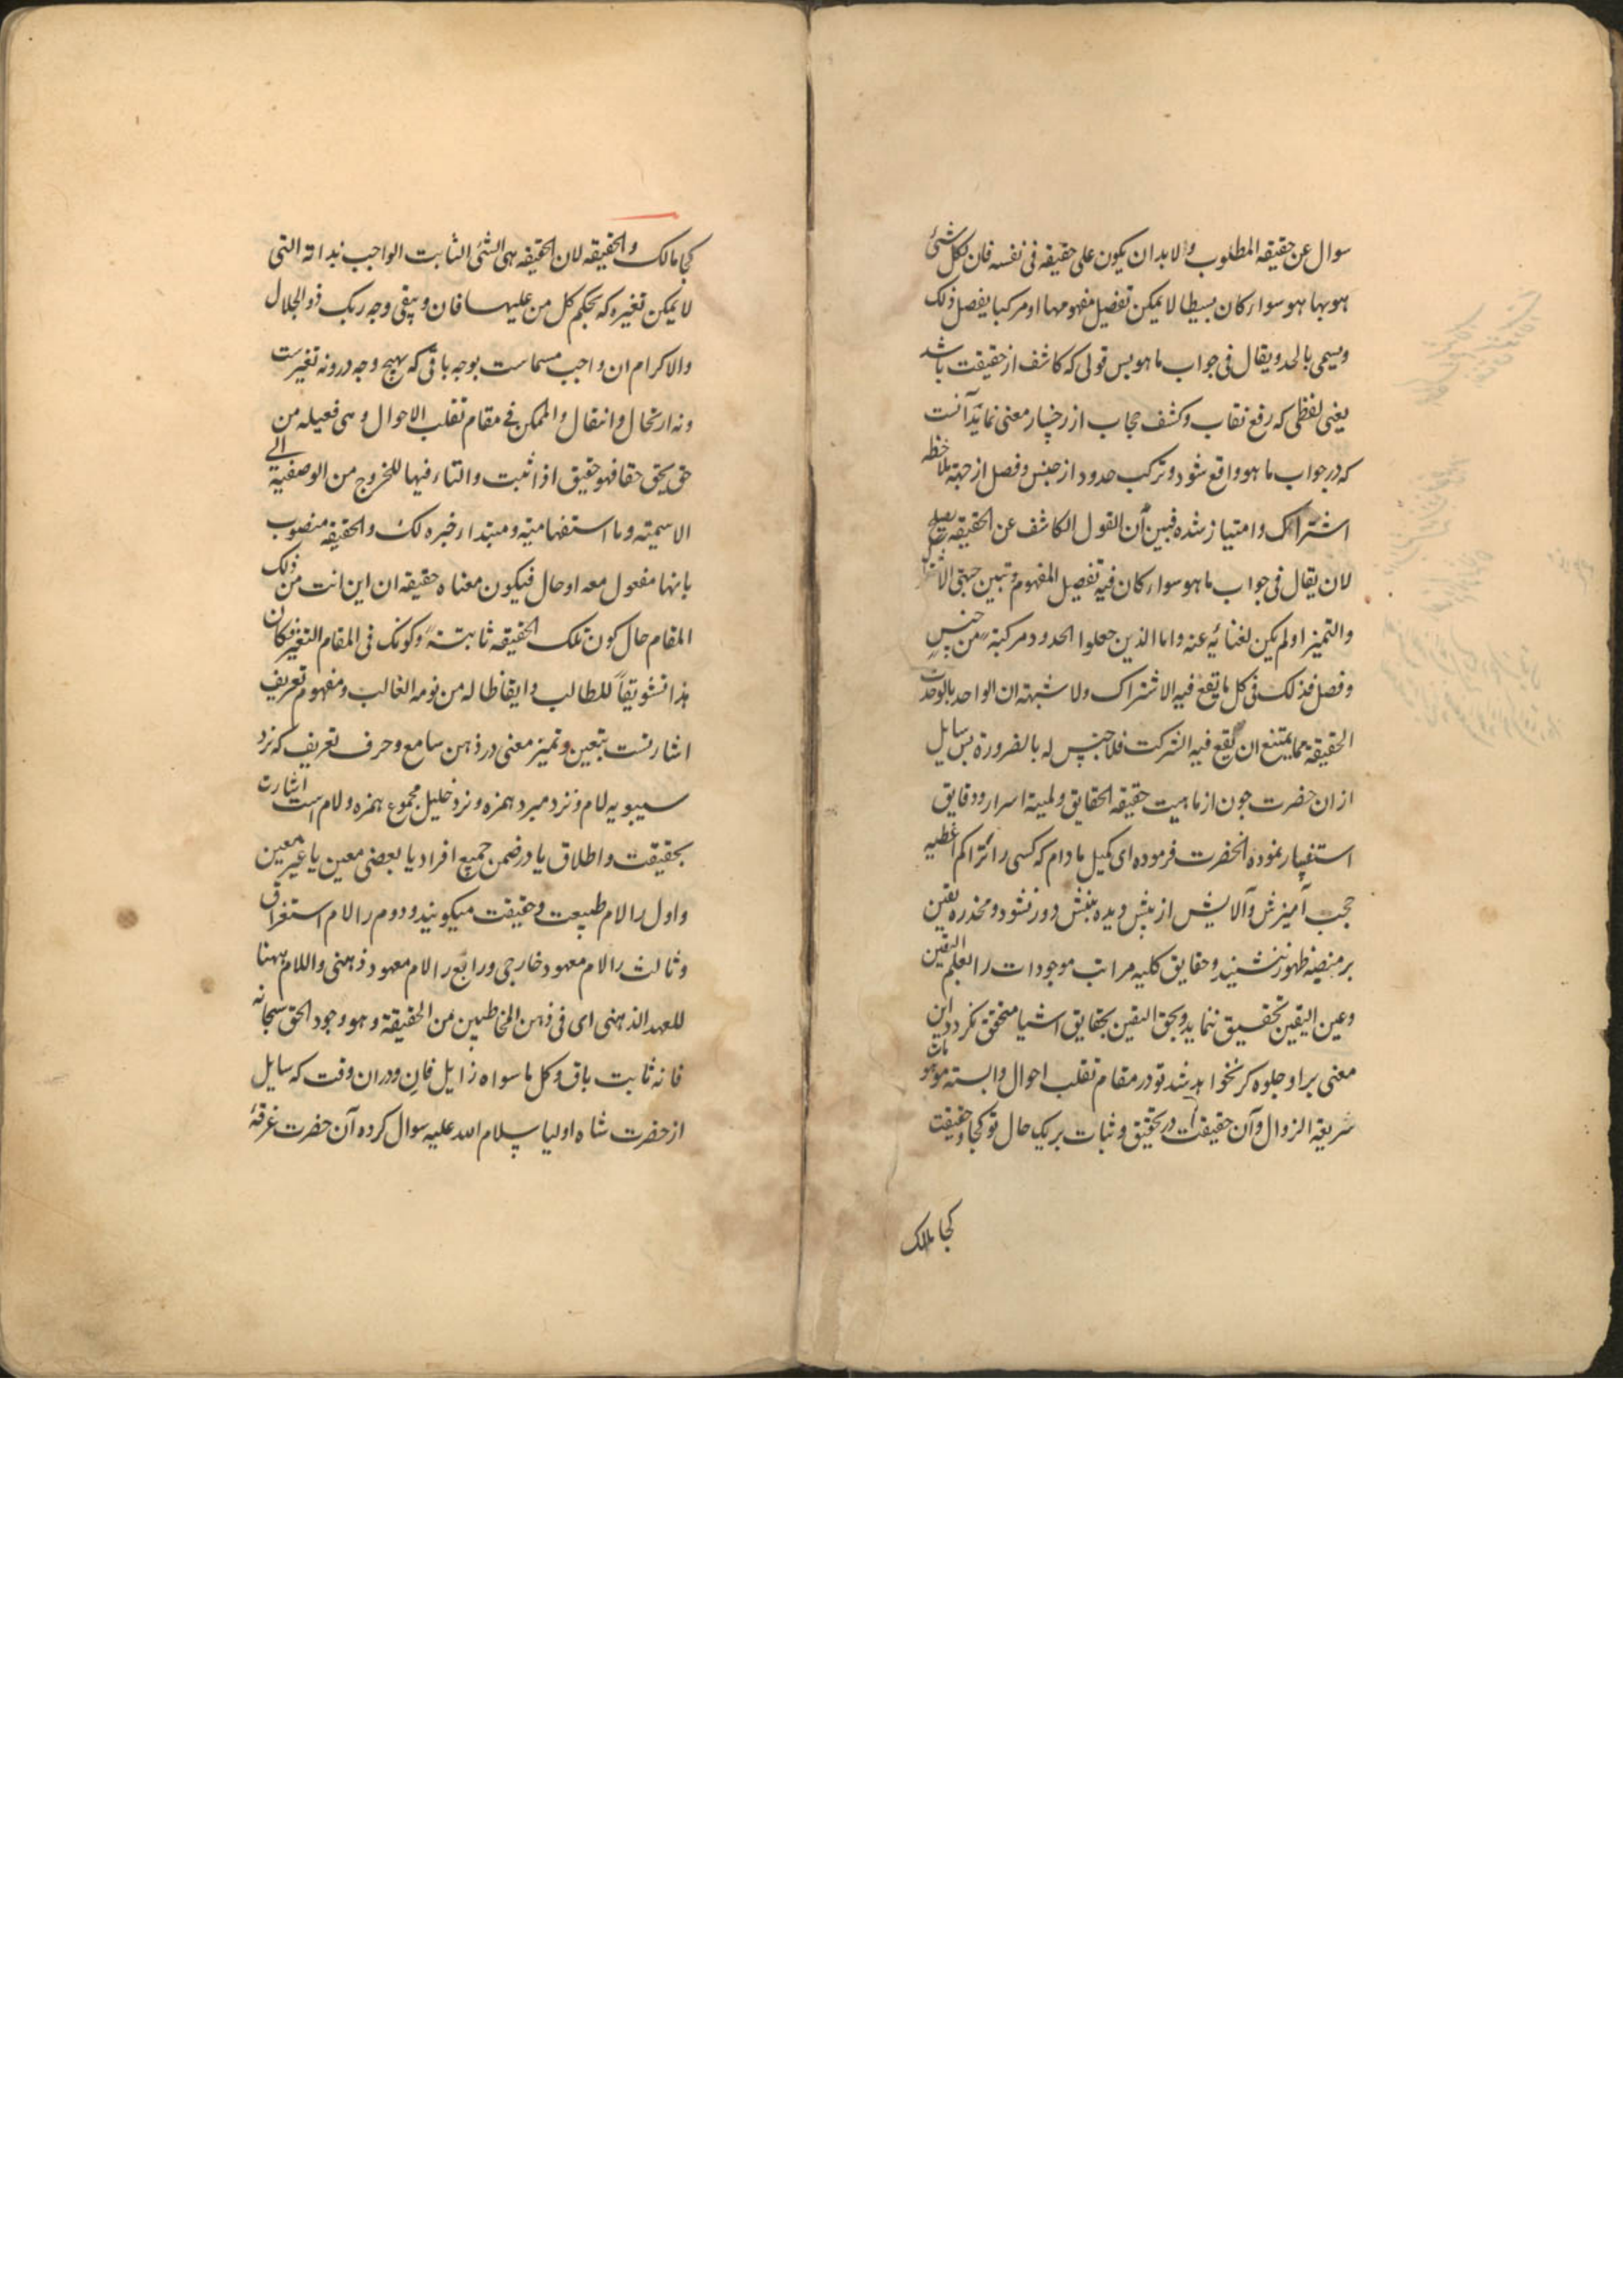 سوال عن حقیقه المطلوب و لابد ان یکون علی حقیقه فی نفسه فان لکل شئ
هو بها هو سواء کان بسیطا لا یمکن تفصیل مفهومها او مرکبا یفصل ذلک
ویسمی بالحد و یقال فی جواب ما هو بس قولی که کاشف از حقیقت باشد
یعنی لفظی که رفع نقاب و کشف حجاب از رخسار معنی نماید آنست
که در جواب ما هو واقع شود و ترکب حدود از جنس و فصل از جهة ملاحظه
اشتراک و امتیاز شده فبین أن القول الکاشف عن الحقیقه یصلح
لان یقال فی جواب ما هو سواء کان فیه تفصیل المفهوم و تبین جهتی الاشتراک
والتمیز او لم یکن لغنائه عنه واما الذین جعلوا الحدود مرکبة من جنس
و فصل فذلک فی کل ما یقع فیه الاشتراک ولا شبهة ان الواحد بالوحدت
الحقیقة مما یمتنع ان یقع فیه الشرکت فلا جنس له بالضرورة بس سایل
از ان حضرت جون از ماهیت حقیقه الحقایق و لمیة اسرار و دقایق
استفسار نموده انحضرت فرموده ای کمیل مادام که کسی را تراکم اغطیه
حجب آمیزش و آلایش از پیش دیده بینش دور نشود و مخدره یقین
بر منصه ظهور ننشیند و حقایق کلیه مراتب موجودات را بعلم الیقین
وعین الیقین تحقیق ننماید و بحق الیقین بحقایق اشیا متحقق نکردد این
معنی بر او جلوه کر نخواهد شد تو در مقام تقلب احوال وابسته موهومات
سریعة الزوال و آن حقیقت در تحقیق و ثبات بر یک حال تو کجا و حقیقت
کجا مالک
کجا مالک والحقیقه لان الحقیقه هی الشئی الثابت الواجب بذاته التی
لا یمکن تغیره که بحکم کل من علیها فان و یبقی وجه ربک ذو الجلال
والاکرام ان واجب مسماست بوجه باقی که بهیچ وجه درو نه تغیرست
ونه ارتحال و انتقال والممکن فی مقام تقلب الاحوال و هی فعیله من
حق یحق حقا فهو حقیق اذا ثبت والتاء فیها للخروج من الوصفیة الی
الاسمیته وما استفهامیة و مبتدا و خبره لک والحقیقه منصوب
بانها مفعول معه او حال فیکون معناه حقیقه ان این انت من ذلک
المقام حال کون تلک الحقیقه ثابتة وکونک فی المقام التغیر فکان
هذا تشویقاً للطالب و ایقاظا له من نومه الغالب و مفهوم تعریف
اشارتست بتعین و تمیز معنی در ذهن سامع و حرف تعریف که نزد
سیبویه لام و نزد مبرد همزه و نزد خلیل مجموع همزه و لام است اشارت
بحقیقت و اطلاق یا در ضمن جمیع افراد یا بعضی معین یا غیر معین
و اول را لام طبیعت و حقیقت میکویند و دوم را لام استغراق
و ثالث را لام معهود خارجی و رابع را لام معهود ذهنی واللام ههنا
للعهد الذهنی ای فی ذهن المخاطبین من الحقیقة و هو وجود الحق سبحانه
فانه ثابت باق و کل ما سواه زایل فان و در ان وقت که سایل
از حضرت شاه اولیا سلام الله علیه سوال کرده آن حضرت غرقهٔ